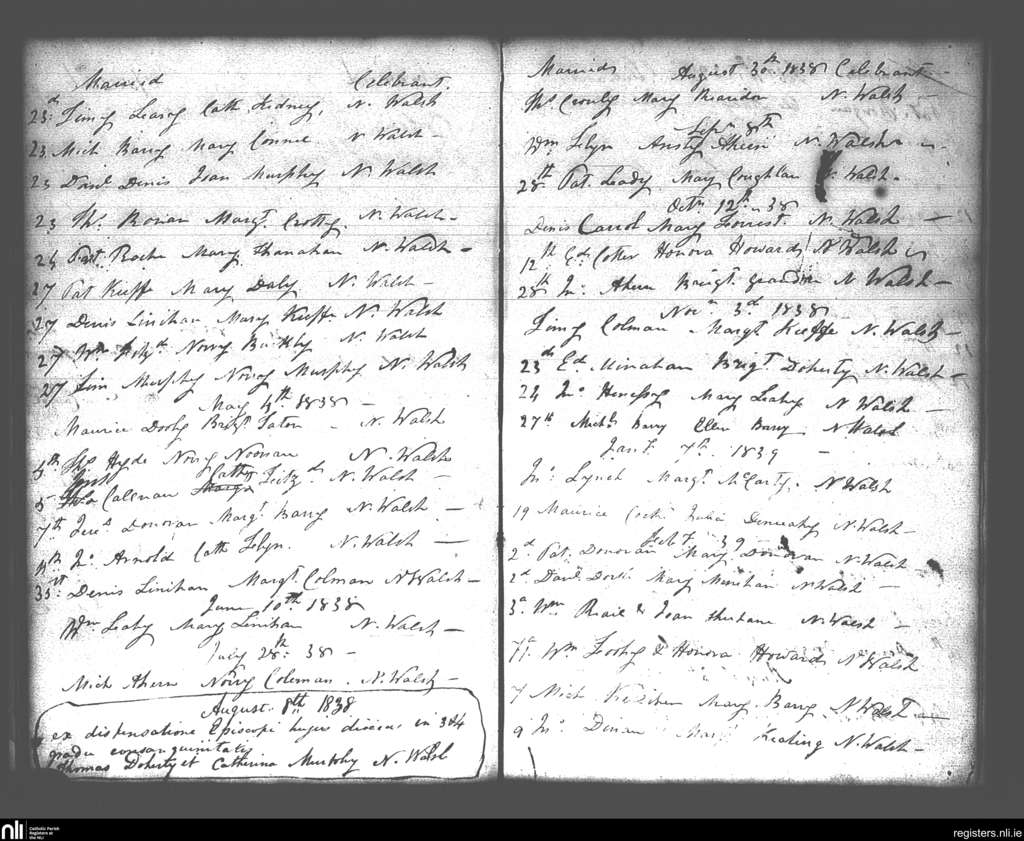 Married Celebrant.
23d Timy Leary Cath Kidney, N. Walsh
23 Mich Barry Mary Connell N Walsh -
23 Danl Denis Joan Murphy N. Walsh
23 Ths. Ronan Margt. Crotty. N. Walsh -
24 Pat. Roche Mary Shanahan N. Walsh -
27 Pat Kieffe Mary Daly N. Walsh -
27 Denis Linihan Mary Kieffe N. Walsh
27 Wm Fitzd Norry Buckley N. Walsh
27 Tim Murphy Norry Murphy N. Walsh
May 4th 1838 -
Maurice Dooly Bridgt N. Walsh
5th Ths Hyde Norry Noonan N. Walsh
5 Callnan Cath Fitzd N. Walsh -
7th Donovan Margt. Barry N. Walsh -
Jno Arnold Cath N. Walsh -
31st: Denis Linihan Margt Colman N Walsh -
June 10th 1838
Wm Leahy Mary Linihan N. Walsh -
July 28th. 38 -
Mich Ahern Norry Coleman. N. Walsh -
August. 8th 1838
ex dispensatione Episcopi hujus diocesis in 3 & 4
gradu consanguinitatis
Thomas Doherty et Catherina Murphy N. Walsh
Married August 30th 1838 Celebrant -
Ths. Crouly Mary Reardon N. Walsh -
Sepr 8th
Wm N. Walsh
28th Pat. Leady Mary Coughlan N. Walsh.
Octr 12th 38
Denis Carrol Mary Forrest N. Walsh -
12th Ed. Cotter Honora Howard N Walsh
28th Jno: Ahern Bridgt. N Walsh -
Novr 3d. 1838
Timy Colman Margt Kieffe N. Walsh -
23d Ed. Minahan Bridgt. Doherty N. Walsh -
24 Jno Henessy Mary Leahy N Walsh -
27th Michl Barry Ellen Barry N Walsh
Jany. 7th. 1839 -
Jno: Lynch Margt. McCarty. N Walsh
19 Maurice Julia N. Walsh -
Feby. 39
2d. Pat. Donovan Mary Donovan N. Walsh
2d Danl. Mary Minihan N Walsh -
3d Wm & Joan N. Walsh -
7th. Wm & Honora Howard N Walsh
7 Mich Mary Barry N Walsh
9 Jno Keating N. Walsh -
nli
Catholic Parish
Registers at
the NLI
registers.nli.ie